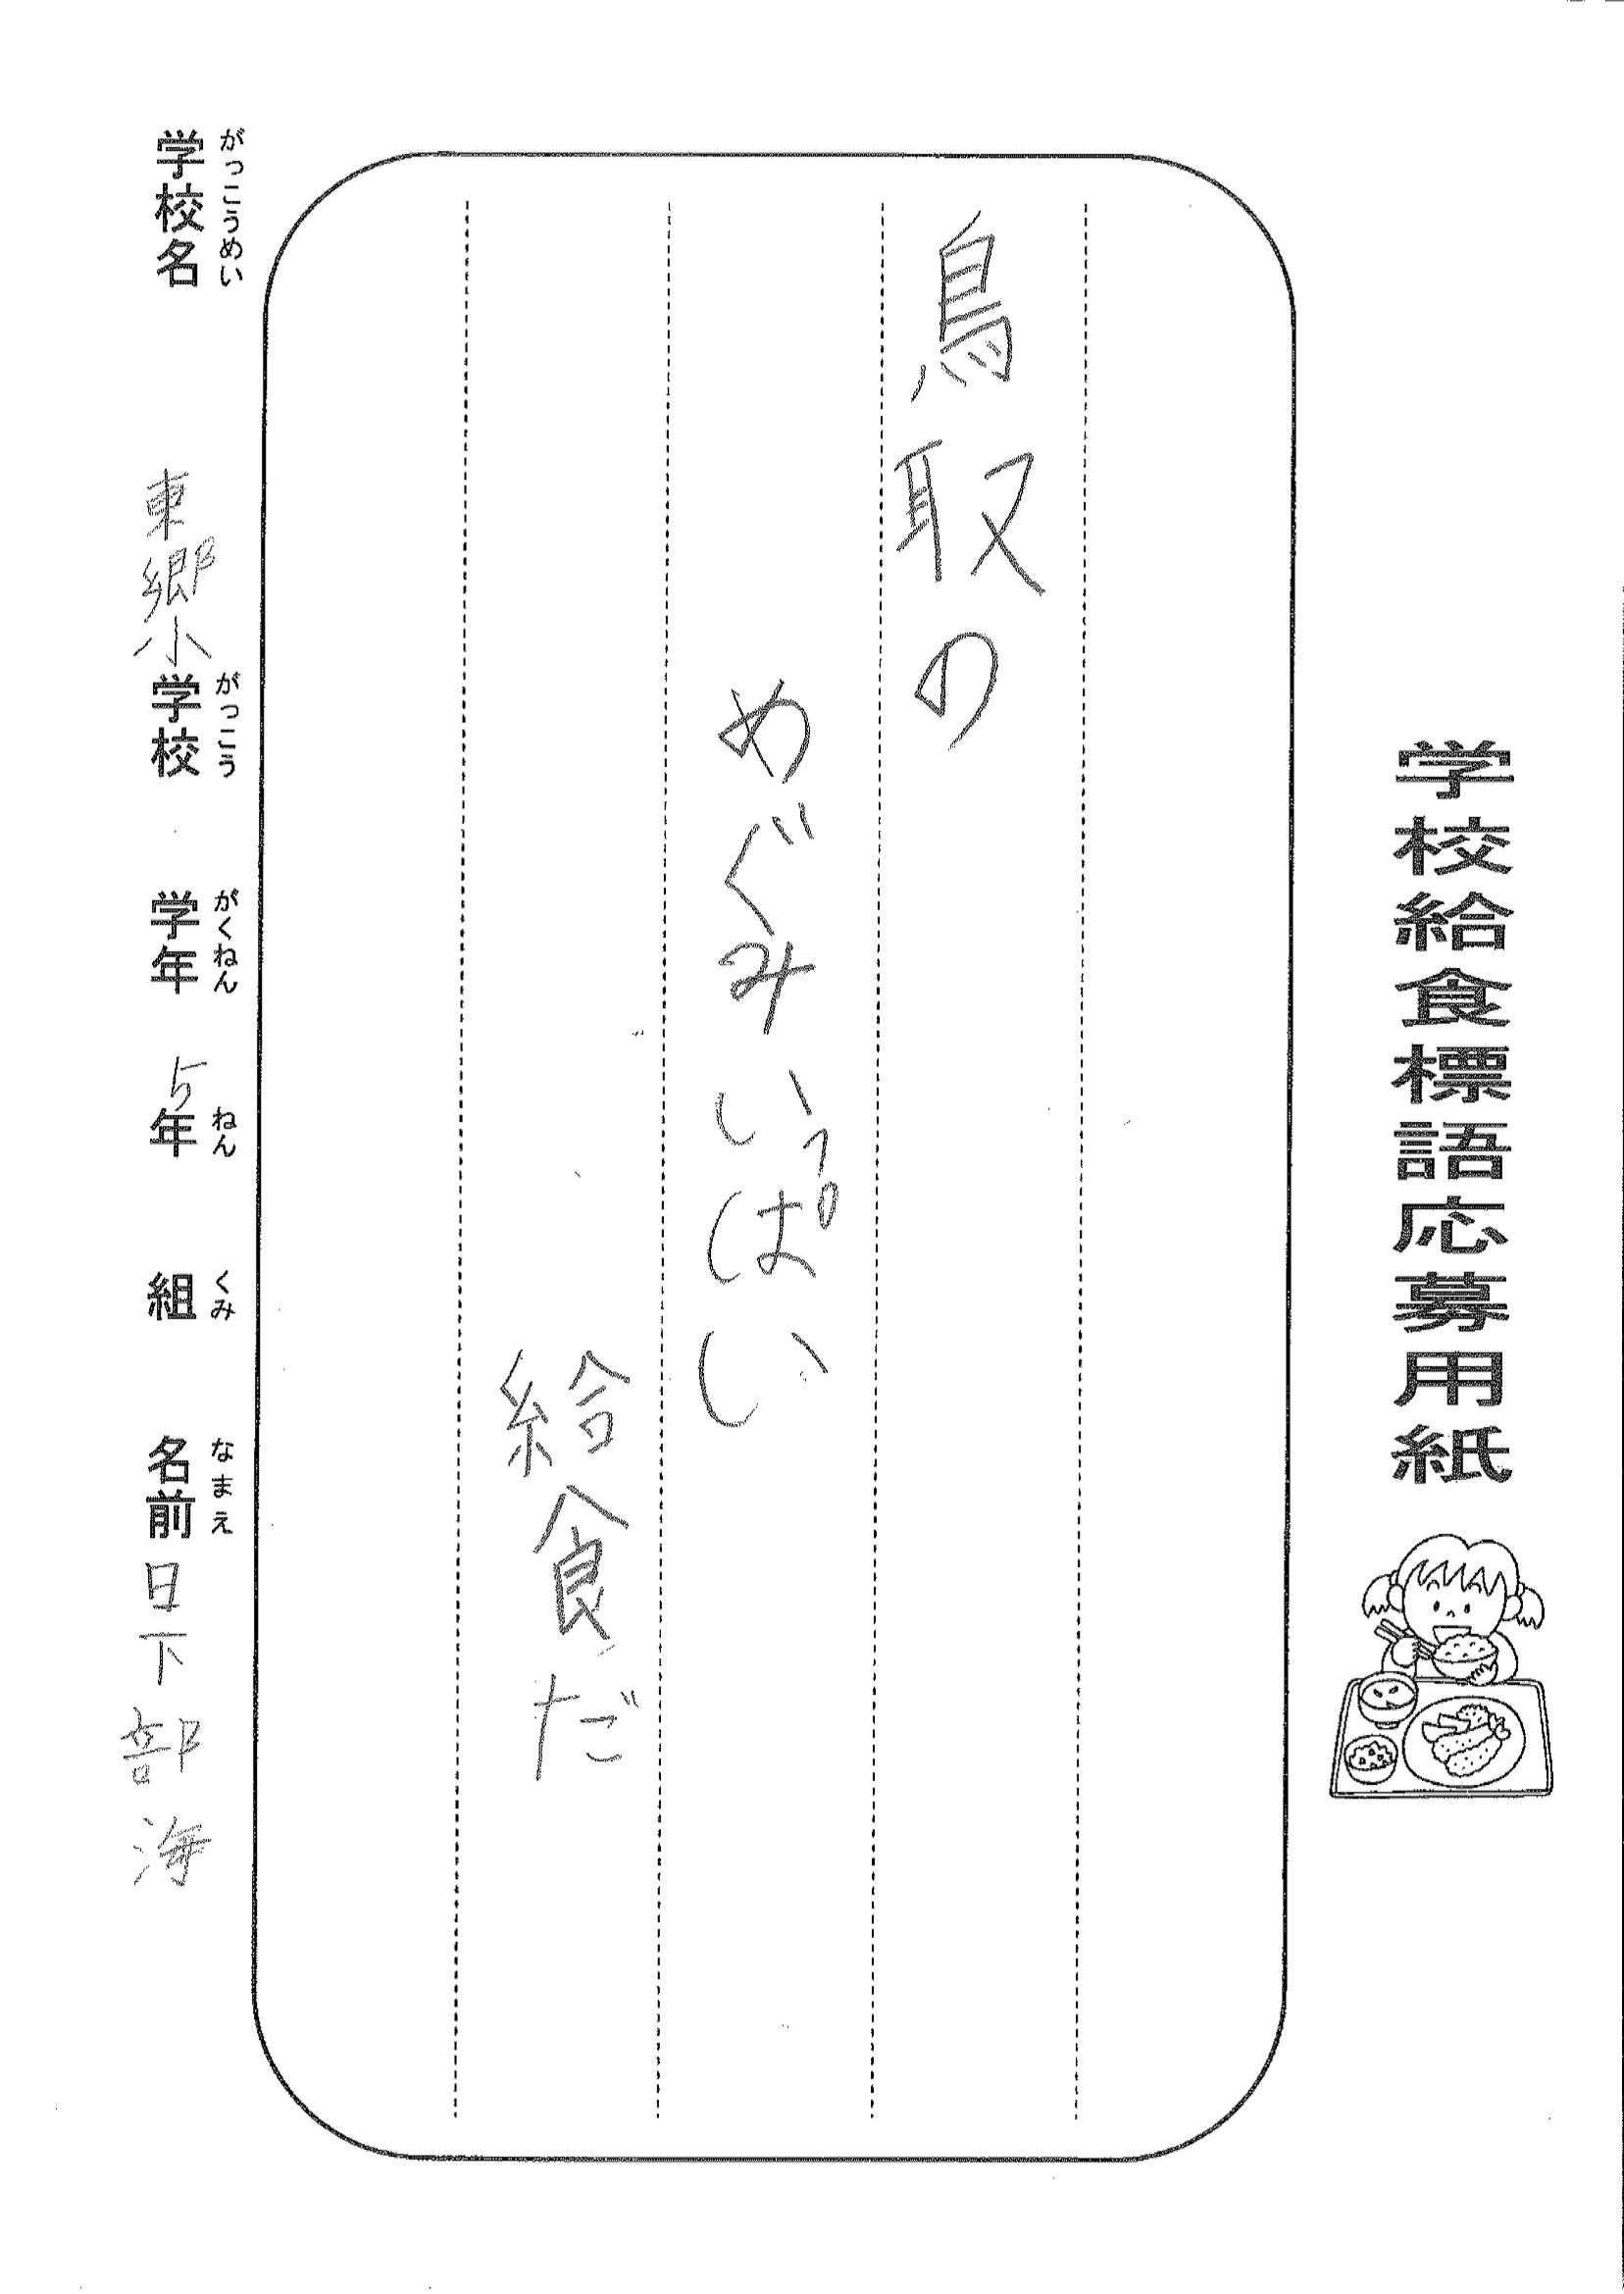 学校給食標語応募用紙
鳥取の
めぐみいっぱい
給食だ
がっこうめい がっこう がくねん ねん くみ なまえ
学校名 東郷小学校 学年 5年 組 名前 日下部 海